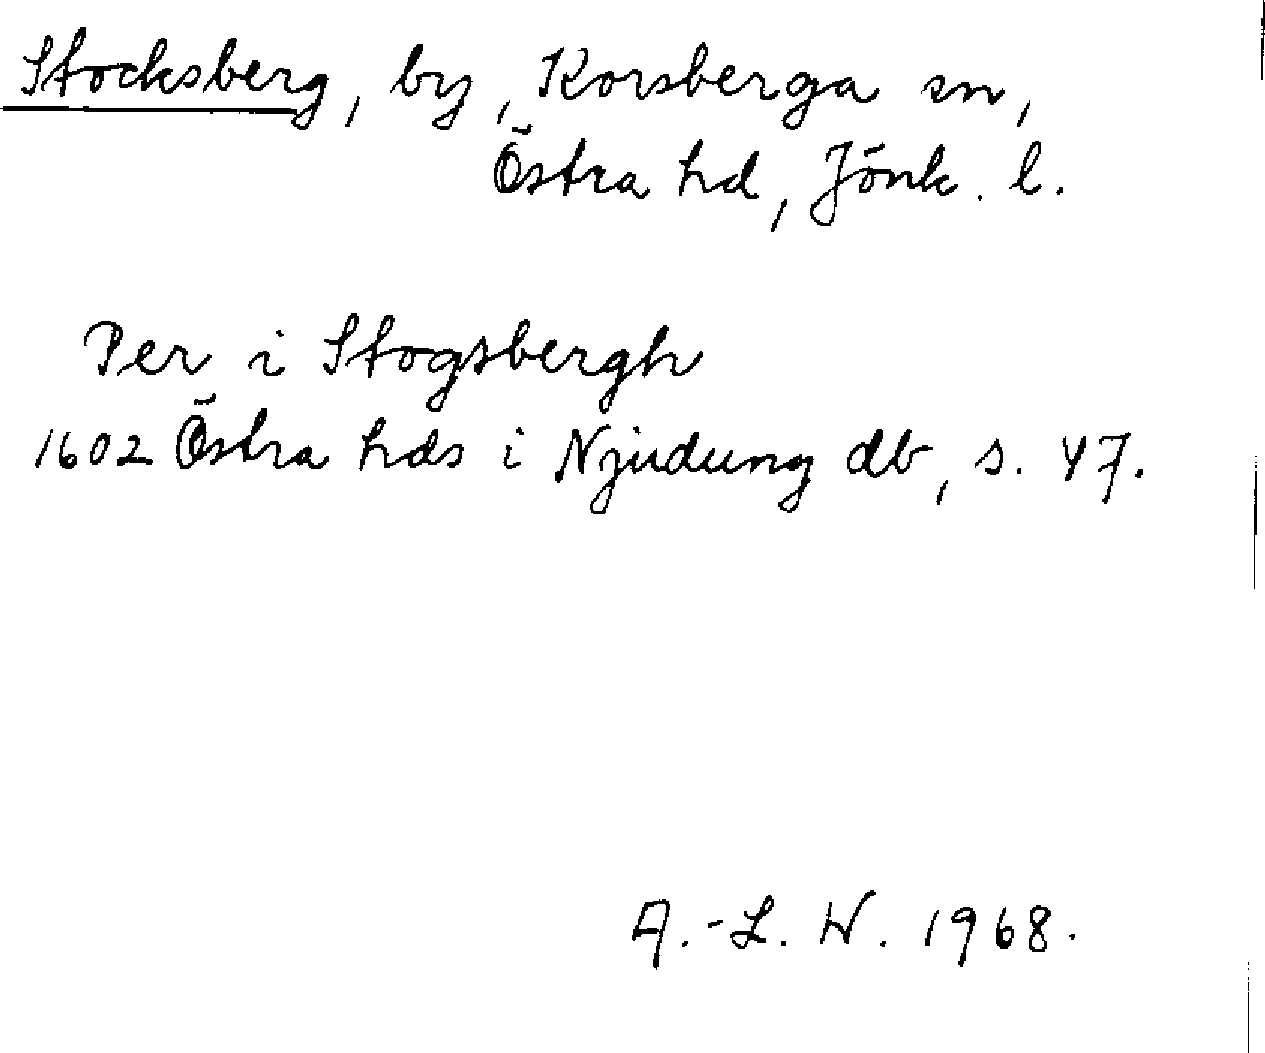 Stocksberg, by, Korsberga sn,
Östra hd, Jönk. l.
Per i Stogsbergh
1602 Östra hds i Njudung db, s. 47.
A.-L. W. 1968.